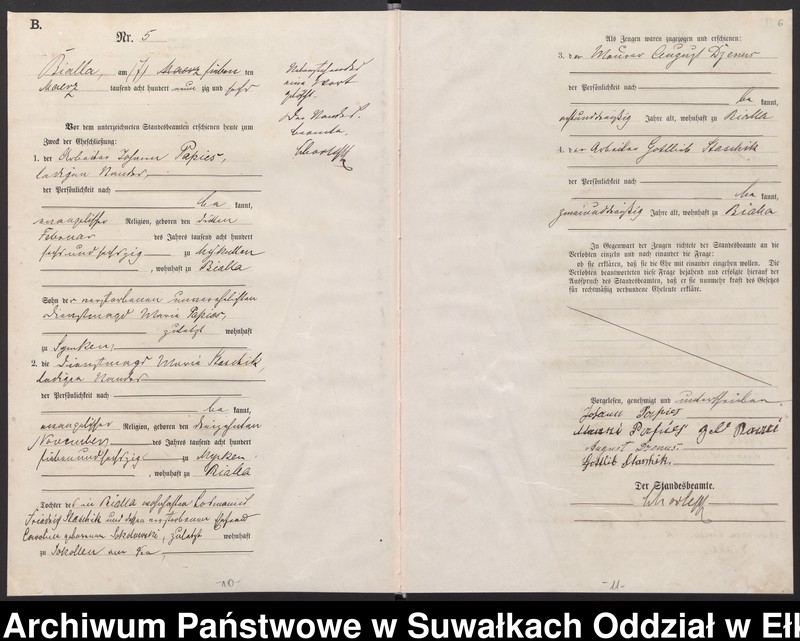 B.
Nr. 5
Bialla, am (7) Maerz sieben ten
Maerz tausend acht hundert neun zig und sechs
Vor dem unterzeichneten Standesbeamten erschienen heute zum
Zweck der Eheschließung:
1. der Arbeiter Johann Papies,
ledigen Standes,
der Persönlichkeit nach
be kannt,
evangelischer Religion, geboren den dritten
Februar des Jahres tausend acht hundert
sechsundsechzig zu
, wohnhaft zu Bialla
Sohn der verstorbenen unverehelichten
Dienstmagd Maria Papies,
zuletzt wohnhaft
zu Symken,
2. die Dienstmagd Maria Staschik,
ledigen Standes
der Persönlichkeit nach
be kannt,
evangelischer Religion, geboren den
November des Jahres tausend acht hundert
siebenundsechzig zu
, wohnhaft zu Bialla
Tochter des in Bialla wohnhaften Losmannes
Friedrich Staschik und dessen verstorbenen Ehefrau
Caroline geborenen Sokolowski, zuletzt wohnhaft
zu Sokollen am See,
Nebenstehendes
eine Wort
gelöscht.
Der Standes-
beamte.
-10-
6
Als Zeugen waren zugezogen und erschienen:
3. der Maurer August Dzenus
der Persönlichkeit nach
be kannt,
Jahre alt, wohnhaft zu Bialla
4. der Arbeiter Gottlieb Staschik
der Persönlichkeit nach
be kannt,
zweiunddreißig Jahre alt, wohnhaft zu Bialla
In Gegenwart der Zeugen richtete der Standesbeamte an die
Verlobten einzeln und nach einander die Frage:
ob sie erklären, daß sie die Ehe mit einander eingehen wollen. Die
Verlobten beantworteten diese Frage bejahend und erfolgte hierauf der
Ausspruch des Standesbeamten, daß er sie nunmehr kraft des Gesetzes
für rechtmäßig verbundene Eheleute erkläre.
Vorgelesen, genehmigt und unterschrieben
Johann Papies
August Dzenus
Gottlib Staschik.
Der Standesbeamte.
-11-
Archiwum Państwowe w Suwałkach Oddział w Eł